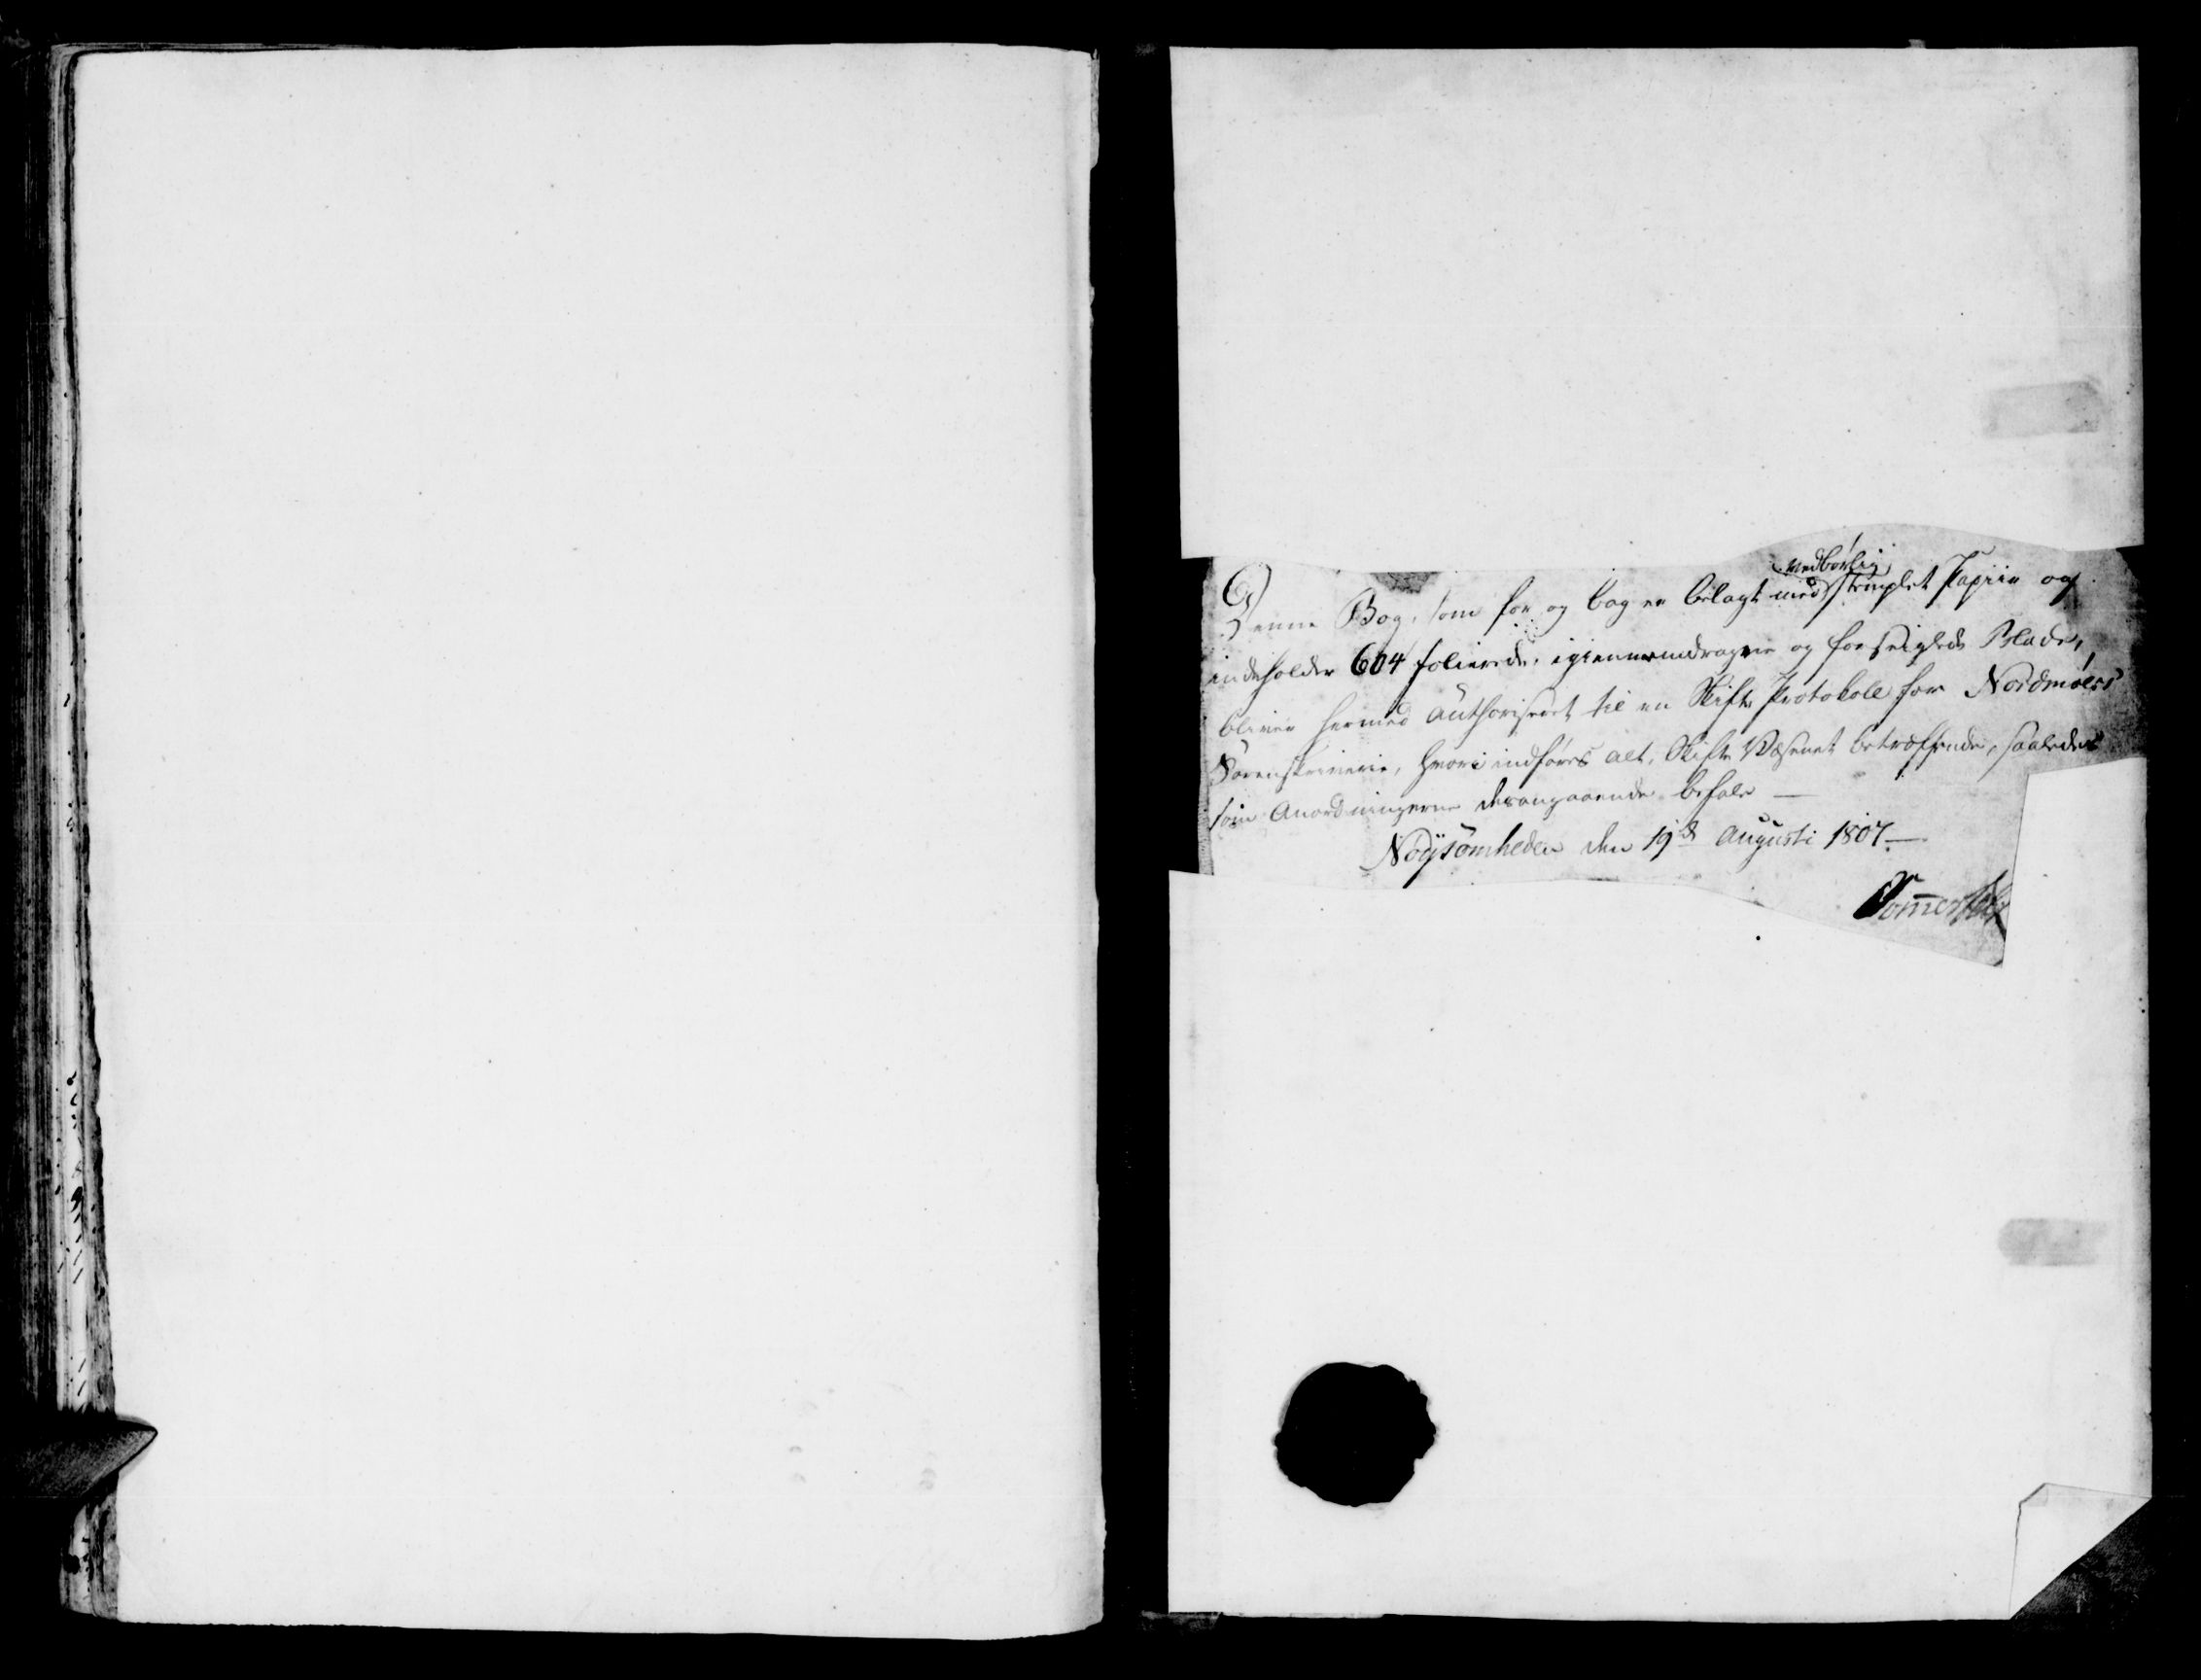 Denne Bog, som for og bag er belagt med vedbørlig stemplet Papiir og
indeholder 604 folierede, igiennemdragne og forseiglede Blade,
bliver hermed authoriseret til en Skifte Protokoll for Nordmøers
Sorenskriverie, hvori indføres alt, Skifte Væsenet betræffende, saaledes
som Anordningerne derangaaende befale —
Nøÿsomheden den 19d Augusti 1807. —